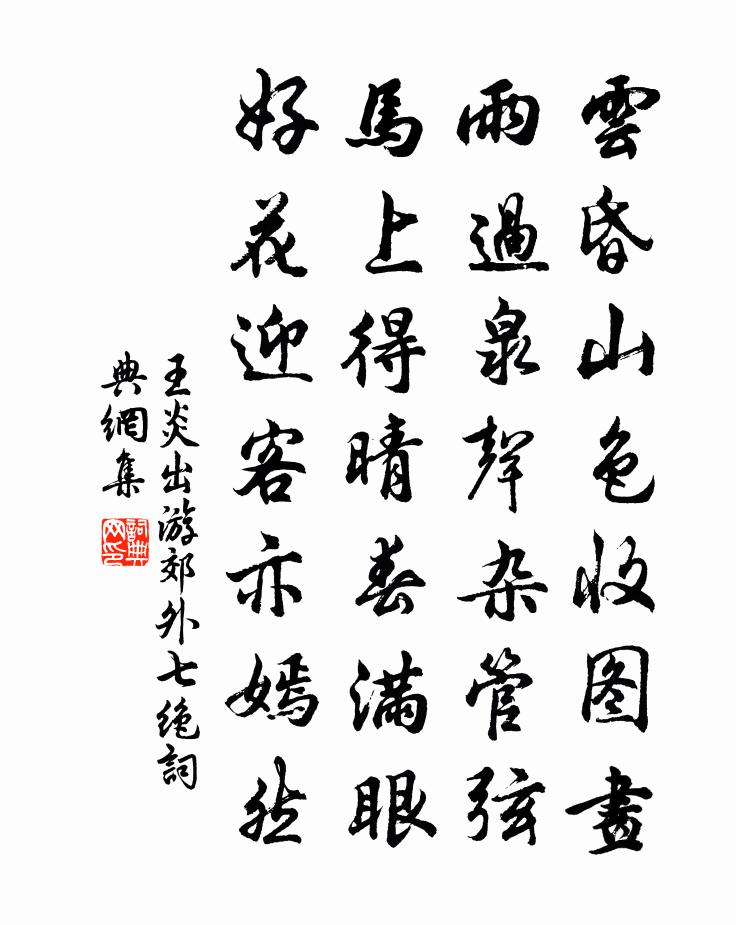 雲昏山色收图畫
雨過泉聲杂管弦
馬上得晴春满眼
好花迎客亦嫣然
王炎出游郊外七绝詞
典網集
詞典
网印